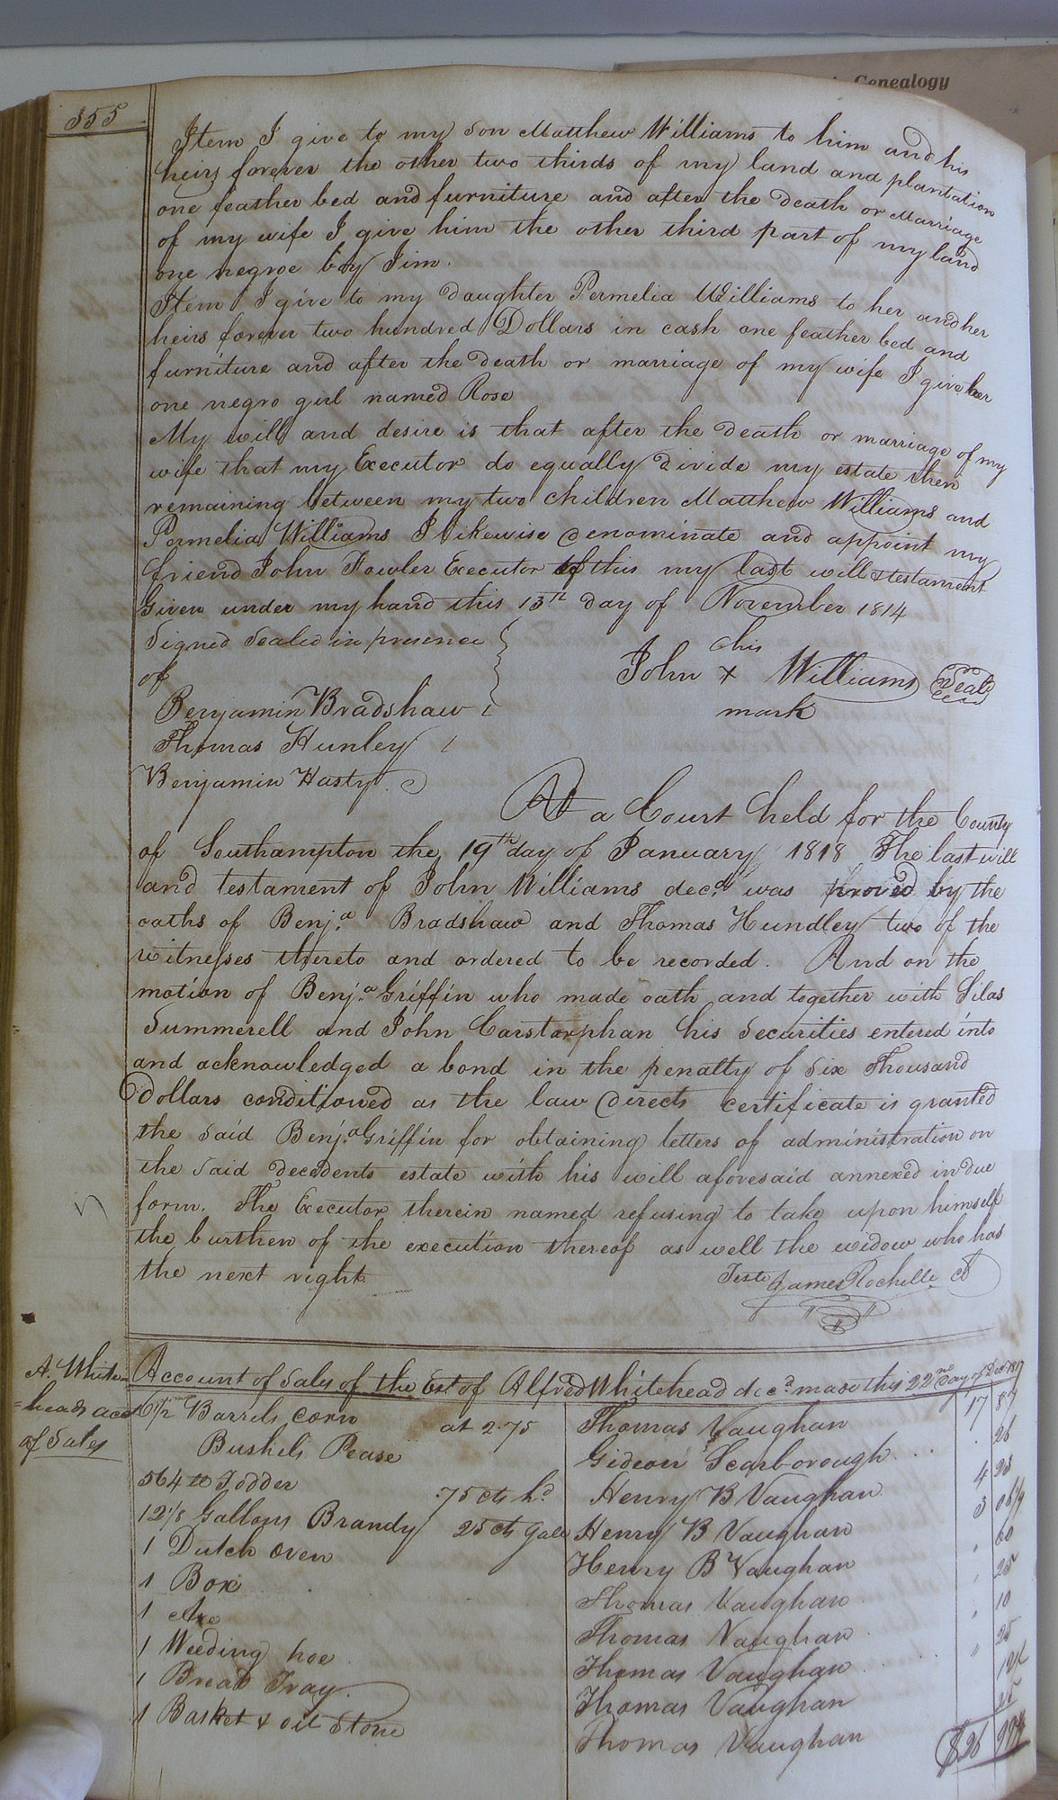 Genealogy
355
Item I give to my son Matthew Williams to him and his
heirs forever the other two thirds of my land and plantation
one feather bed and furniture and after the death or marriage
of my wife I give him the other third part of my land
one negroe boy Jim.
Item I give to my daughter Permelia Williams to her and her
heirs forever two hundred Dollars in cash one feather bed and
furniture and after the death or marriage of my wife I give her
one negro girl named Rose
My will and desire is that after the death or marriage of my
wife that my Executor do equally divide my estate then
remaining between my two children Matthew Williams and
Permelia Williams I likewise denominate and appoint my
friend John Fowler Executor of this my last will & testament
Given under my hand this 13th day of November 1814
Signed Sealed in presence
of
his
John x Williams Seal
mark
Benjamin Bradshaw
Thomas Hunley
Benjamin Hasty
At a Court held for the County
of Southampton the 19th day of January 1818 The last will
and testament of John Williams decd was proved by the
oaths of Benja Bradshaw and Thomas Hundley two of the
witnesses thereto and ordered to be recorded. And on the
motion of Benja Griffin who made oath and together with Silas
Summerell and John Carstarphan his Securities entered into
and acknowledged a bond in the penalty of Six Thousand
Dollars conditioned as the law directs certificate is granted
the said Benja Griffin for obtaining letters of administration on
the said decedents estate with his will aforesaid annexed in due
form. The Executor therein named refusing to take upon himself
the burthen of the execution thereof as well the widow who has
the next right
Teste James Rochelle
A. White
=heads acct
of Sales
Account of Sales of the Est of Alfred Whitehead decd made this 22nd day of Dec 1817
6 1/2 Barrels Corn at 2.75 Thomas Vaughan 17 87
Bushels Pease Gideon Scarborough 26
564 lb Fodder 75 cts hd Henry B Vaughan 4 23
12 1/8 Gallons Brandy 25 cts Gall Henry B Vaughan 3
1 Dutch Oven Henry B Vaughan 60
1 Box Thomas Vaughan 25
1 Axe Thomas Vaughan 10
1 Weeding hoe Thomas Vaughan 25
1 Bread Tray Thomas Vaughan
1 Basket & oil Stone Thomas Vaughan
$26